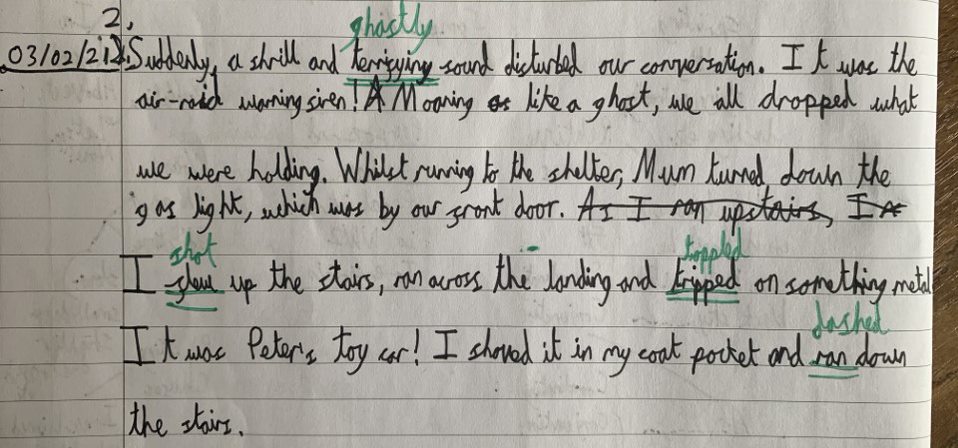 2.
ghastly
03/02/21 Suddenly, a shrill and terrifying sound disturbed our conversation. It was the
air-raid warning siren! A Moaning as like a ghost, we all dropped what
we were holding. Whilst running to the shelter, Mum turned down the
gas light, which was by our front door. As I ran upstairs, I
shot toppled
I flew up the stairs, ran across the landing and tripped on something metal
dashed
It was Peter's toy car! I shoved it in my coat pocket and ran down
the stairs.